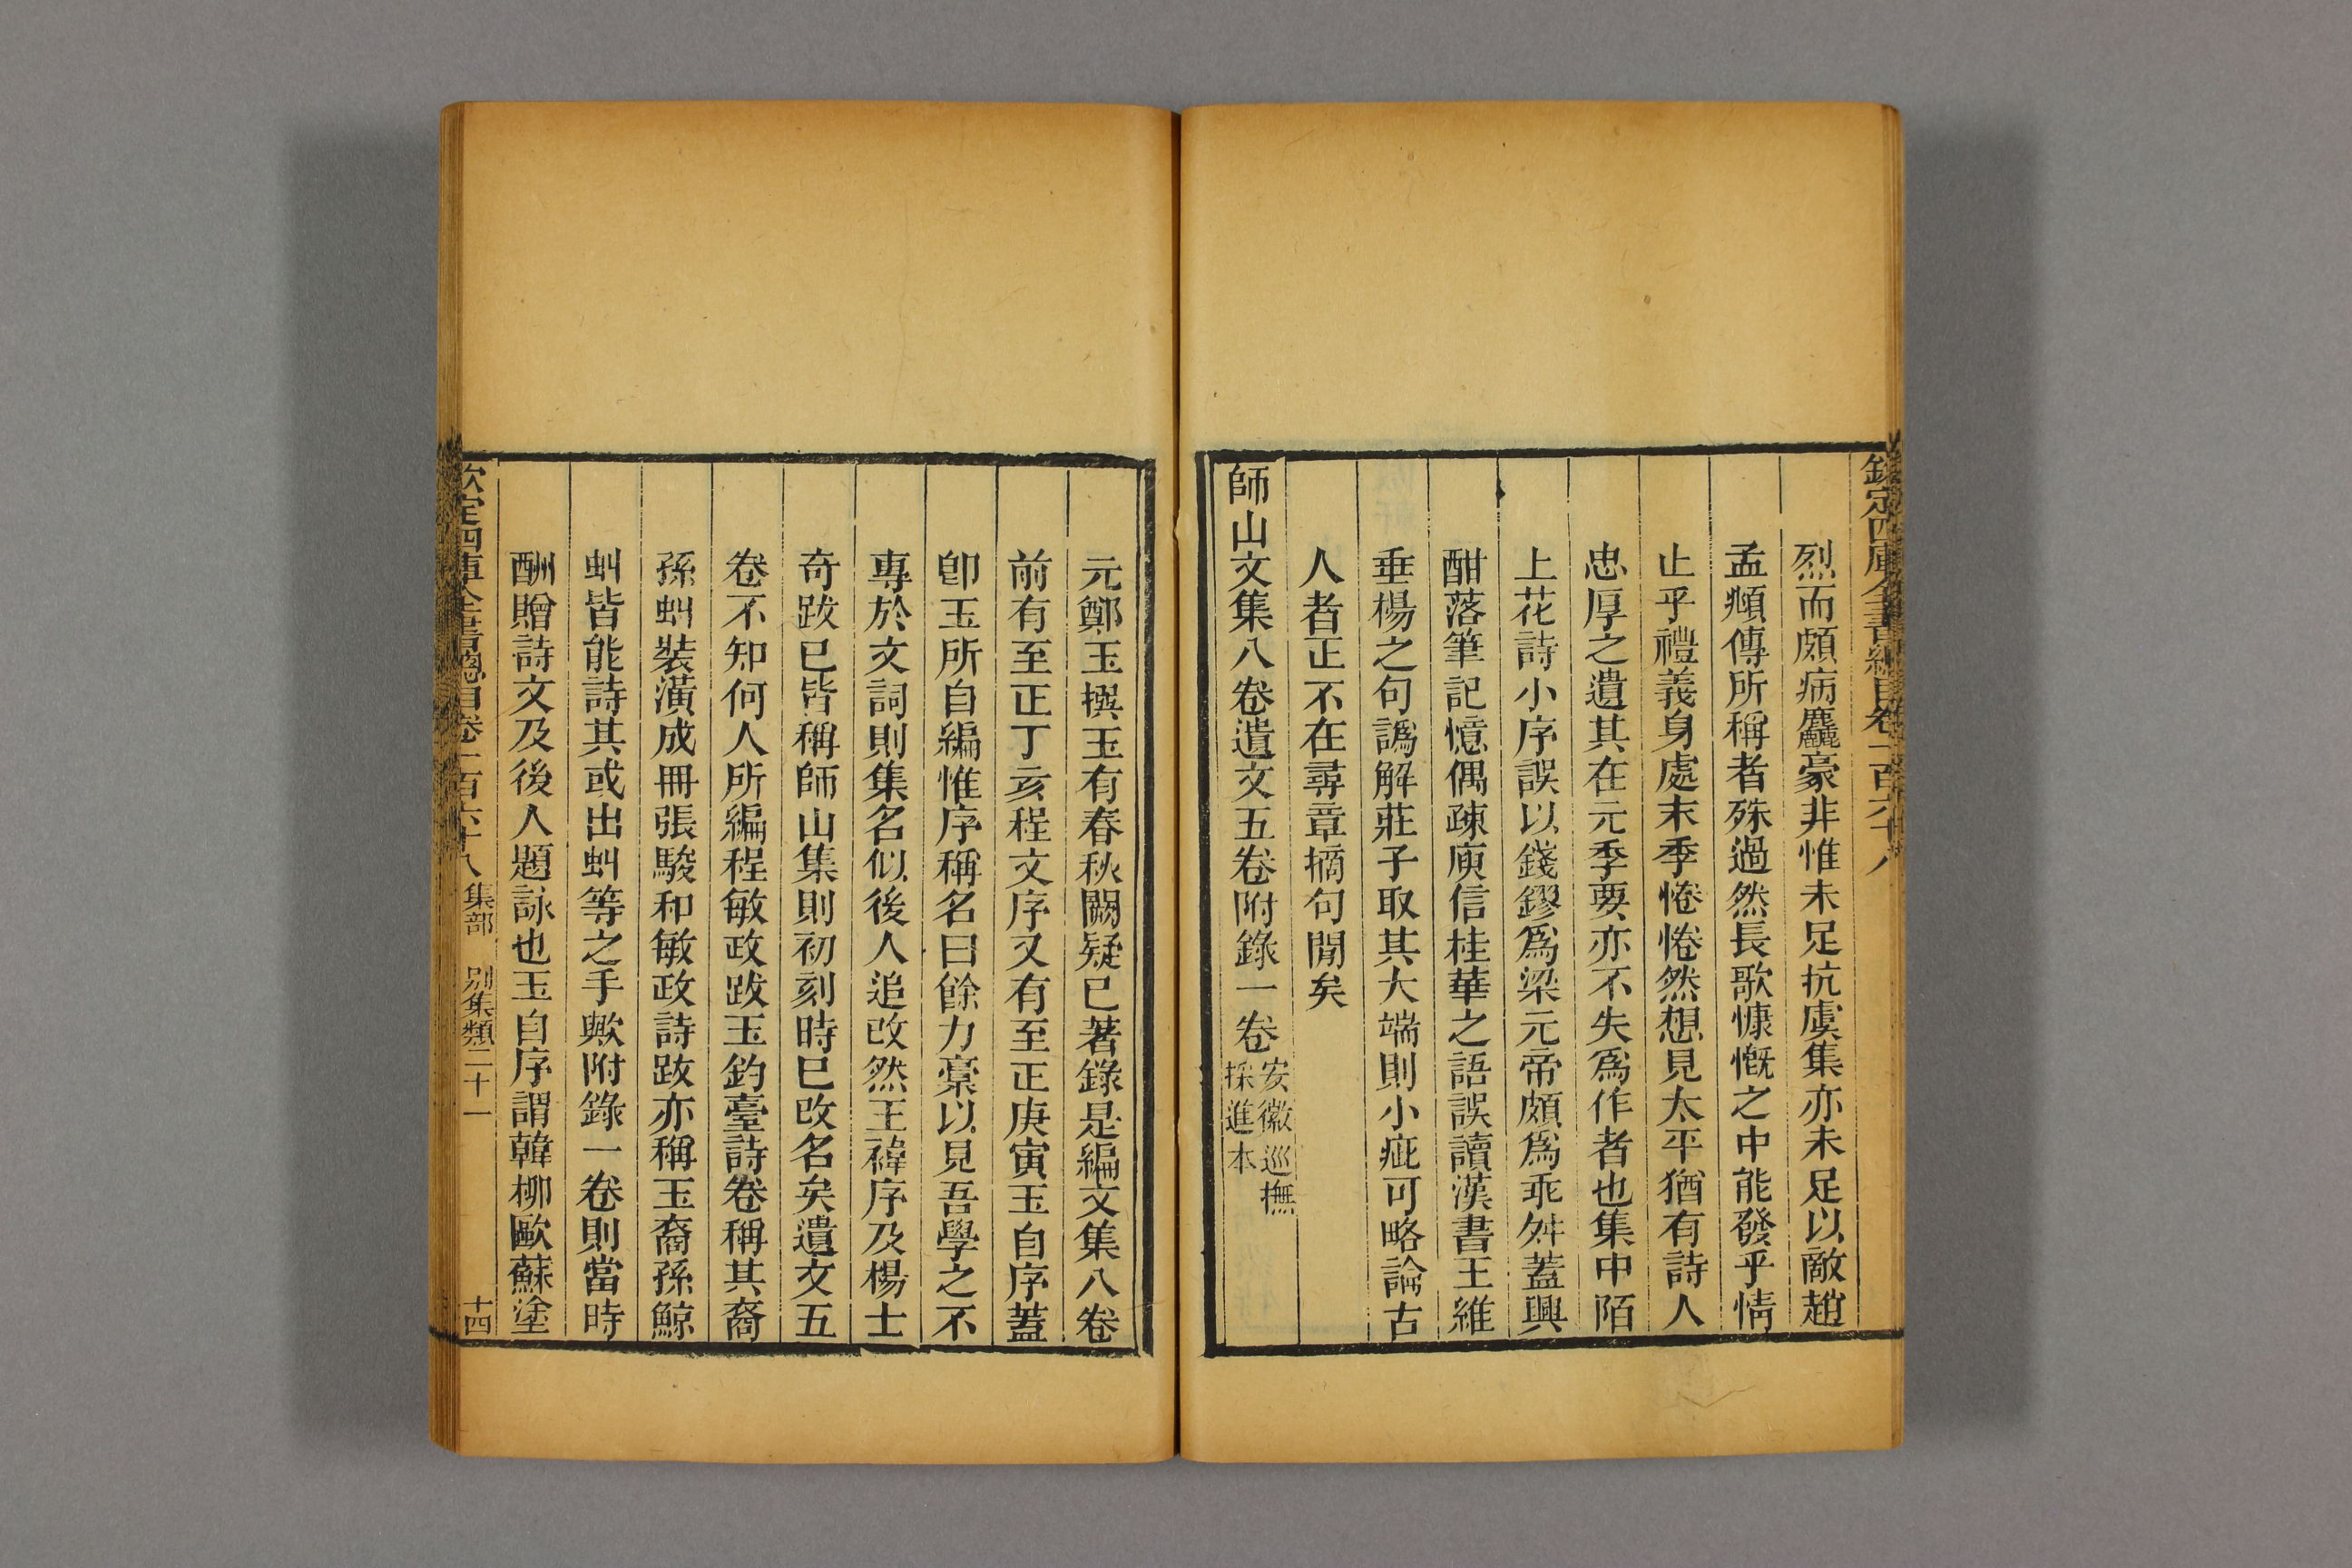 欽定四庫全書總目卷一百六十八
烈而頗病麤豪非惟未足抗虞集亦未足以敵趙
孟頫傳所稱者殊過然長歌慷慨之中能發乎情
止乎禮義身處末季惓惓然想見太平猶有詩人
忠厚之遺其在元季要亦不失爲作者也集中陌
上花詩小序誤以錢鏐爲梁元帝頗爲乖舛蓋興
酣落筆記憶偶疎庾信桂華之語誤讀漢書王維
垂楊之句譌解莊子取其大端則小疵可略論古
人者正不在尋章摘句閒矣
師山文集八卷遺文五卷附錄一卷安徽巡撫
採進本
元鄭玉撰玉有春秋闕疑已著錄是編文集八卷
前有至正丁亥程文序又有至正庚寅玉自序蓋
卽玉所自編惟序稱名曰餘力稾以見吾學之不
專於文詞則集名似後人追改然王褘序及楊士
奇跋已皆稱師山集則初刻時已改名矣遺文五
卷不知何人所編程敏政跋玉釣臺詩卷稱其裔
孫虯裝潢成冊張駿和敏政詩跋亦稱玉裔孫鯨
虯皆能詩其或出虯等之手歟附錄一卷則當時
酬贈詩文及後人題詠也玉自序謂韓柳歐蘇塗
欽定四庫全書總目卷一百六十八 集部 別集類二十一 十四